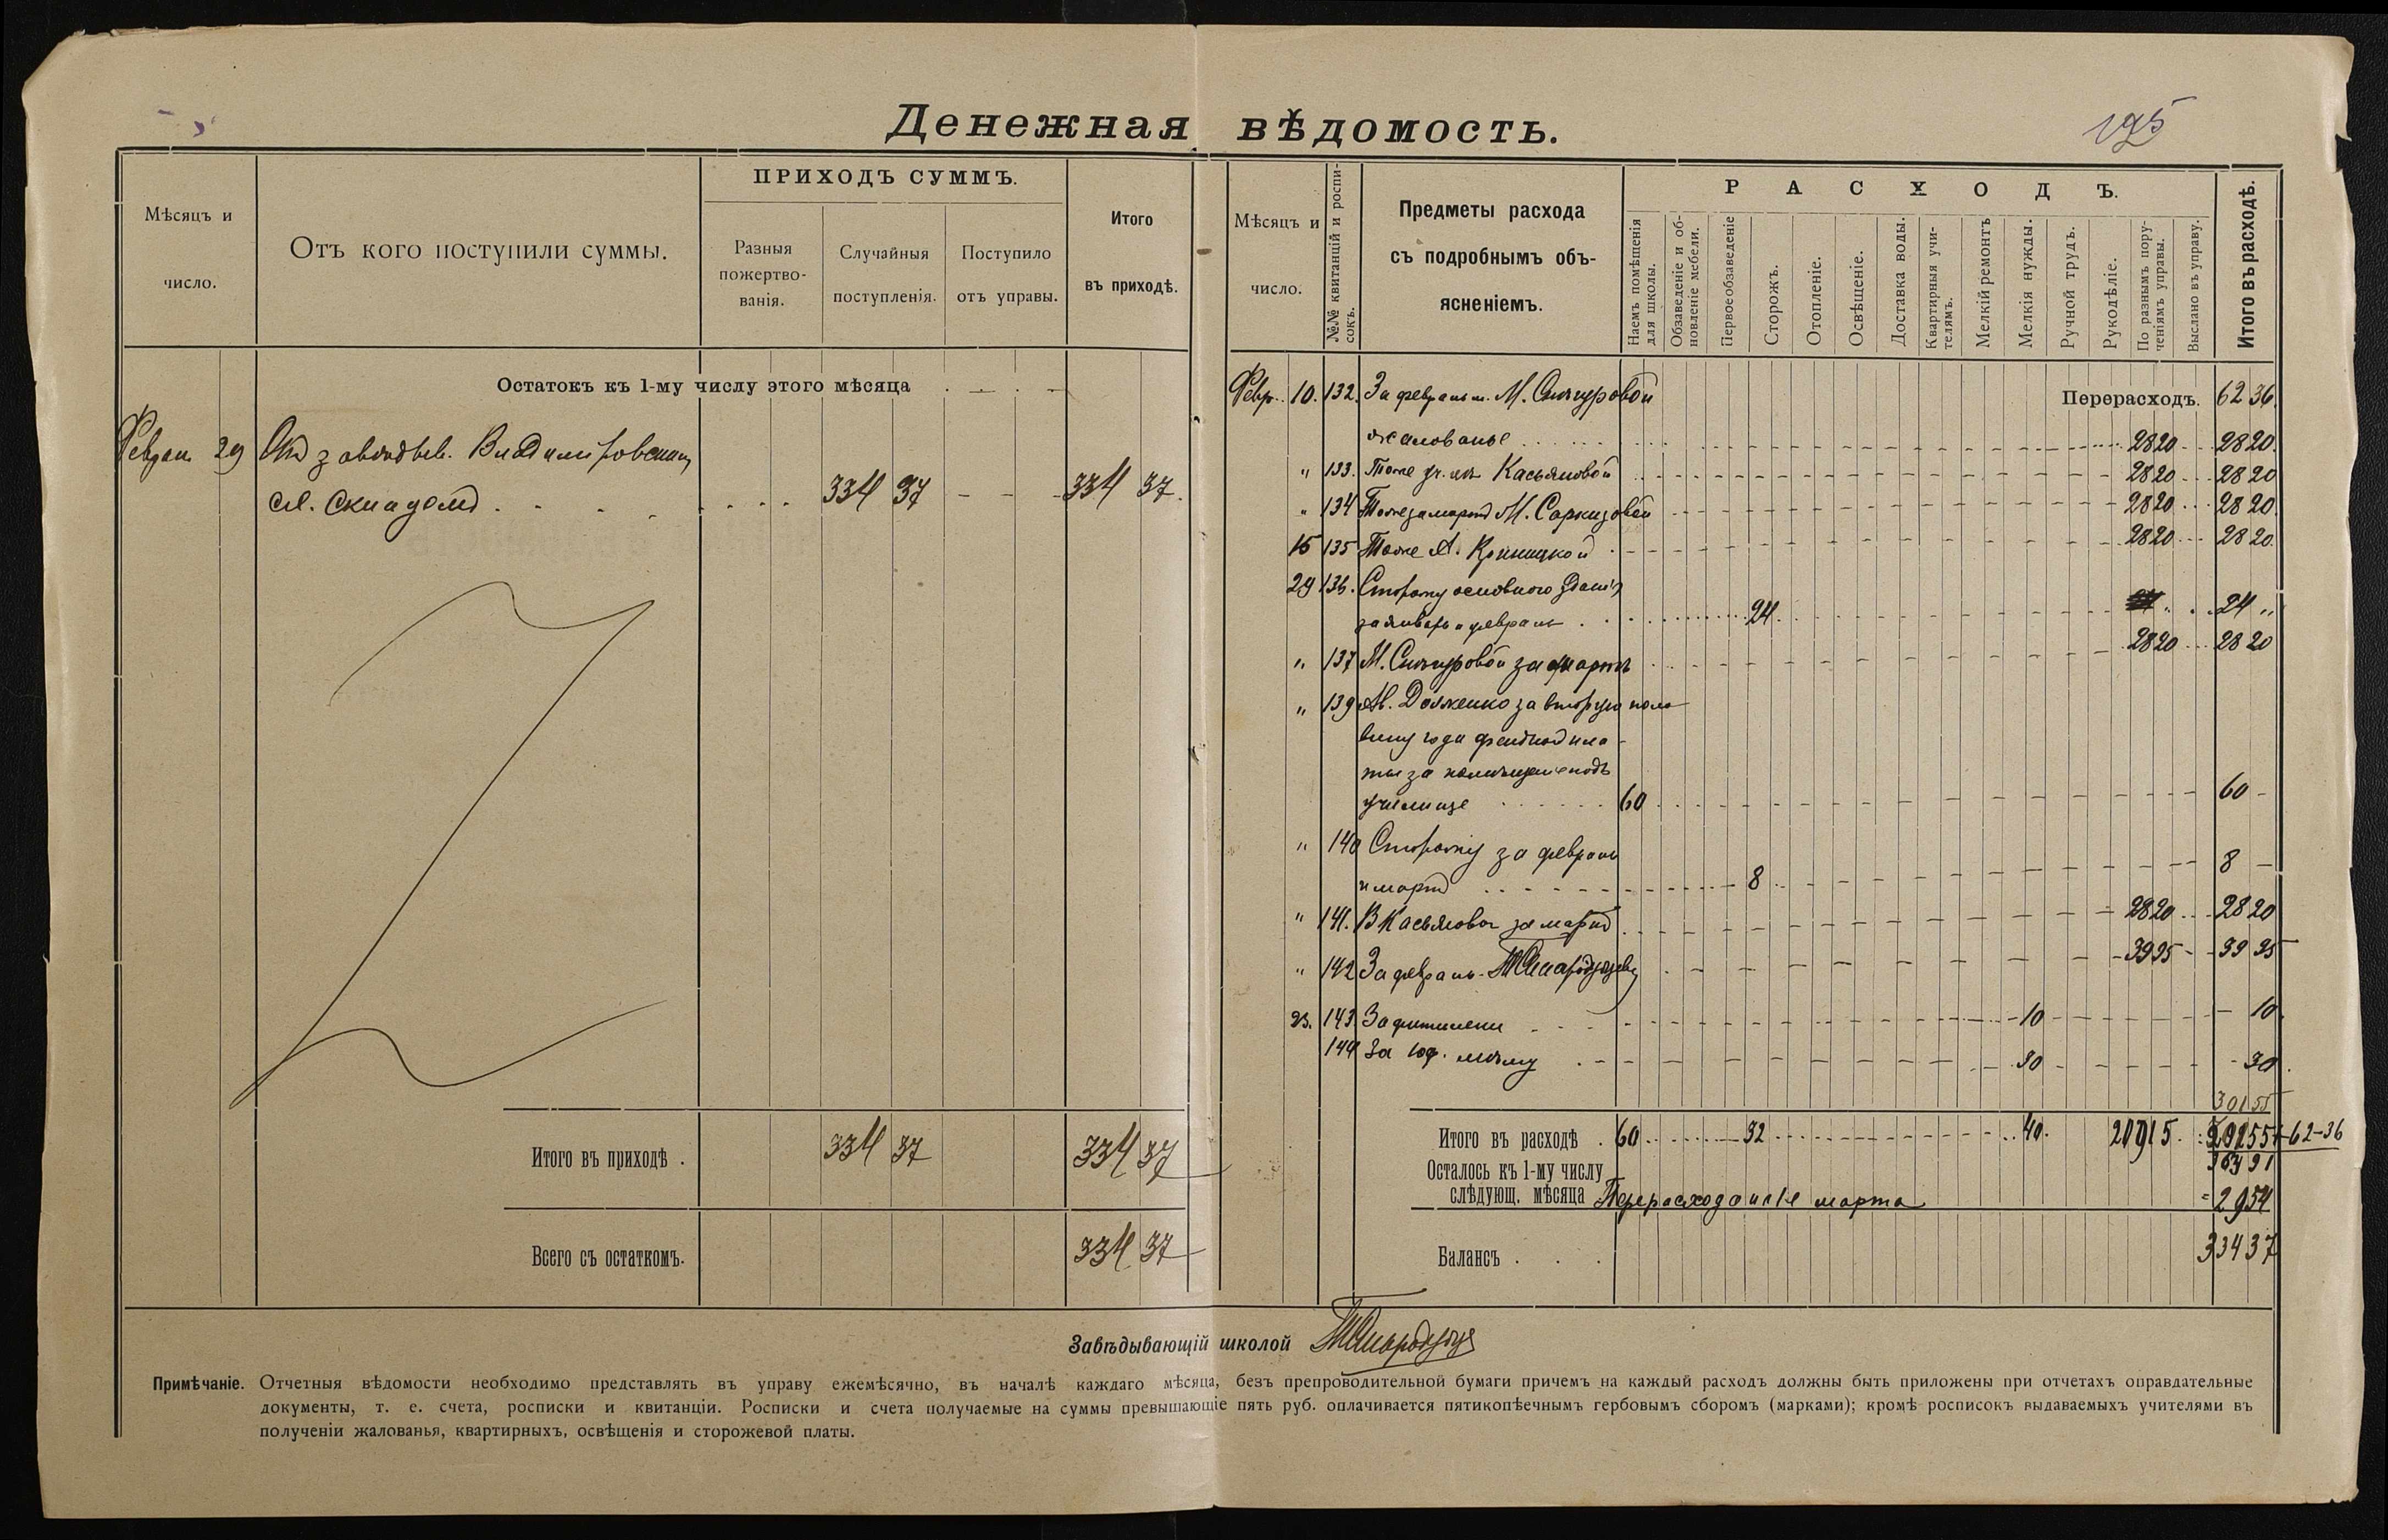 Денежная вѣдомость.
195
Мѣсяцъ и число.
Отъ кого поступили суммы.
ПРИХОДЪ СУММЪ.
Разныя пожертво-
ванія.
Случайныя поступленія.
Поступило отъ управы.
Итого въ приходѣ.
Остатокъ къ 1-му числу этого мѣсяца
29
334 37 334 37.
Итого въ приходѣ . 334 37 334 37
Всего съ остаткомъ. 334 37
Мѣсяцъ и число.
№№ квитанцій и роспи-
сокъ.
Предметы расхода
съ подробнымъ объ-
ясненіемъ.
РАСХОДЪ.
Наемъ помѣщенія
для школы.
Обзаведеніе и об-
новленіе мебели.
Первообзаведеніе
Сторожъ.
Отопленіе.
Освѣщеніе.
Доставка воды.
Квартирныя учи-
телямъ.
Мелкій ремонтъ
Мелкія нужды.
Ручной трудъ.
Рукодѣліе.
По разнымъ пору-
ченіямъ управы.
Выслано въ управу.
Итого въ расходѣ.
Перерасходъ. 62 36.
Февр. 10. 132. За февраль М.
жалованье 28 20 28 20.
" 133. Тоже Касьяновой 28 20 28 20
" 134 Тоже за мартъ М. Саркизовой 28 20 28 20.
15 135 Тоже А. 28 20 28 20.
29 136. Сторожу основного зданія
за январь и февраль 24. 24 "
" 137 М. за мартъ 28 20 28 20
" 139 Ав. Долженко за вторую поло
вину года арендной пла-
ты за помѣщеніе подъ
училище 60 60 -
" 140 Сторожу за февраль 8 —
и мартъ 8
" 141. В Касьяновой за мартъ 28 20 28 20
" 142 За февраль 39 95 39 95
23. 143. За фитили 10 10.
144 За 30 30.
301 55
Итого въ расходѣ . 60 32 40. 209 15. +62-36
Осталось къ 1-му числу 363 91
слѣдующ. мѣсяца Перерасхода на 1е марта = 29 54
Балансъ . . . 334 37
Завѣдывающій школой
Примѣчаніе. Отчетныя вѣдомости необходимо представлять въ управу ежемѣсячно, въ началѣ каждаго мѣсяца, безъ препроводительной бумаги причемъ на каждый расходъ должны быть приложены при отчетахъ оправдательные
документы, т. е. счета, росписки и квитанціи. Росписки и счета получаемые на суммы превышающіе пять руб. оплачивается пятикопѣечнымъ гербовымъ сборомъ (марками); кромѣ росписокъ выдаваемыхъ учителями въ
полученіи жалованья, квартирныхъ, освѣщенія и сторожевой платы.